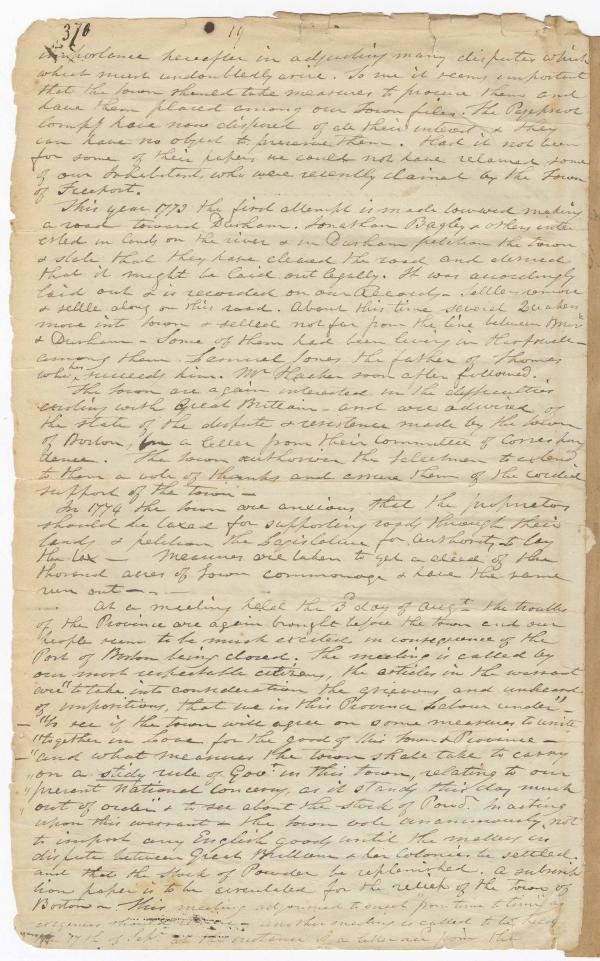 376
19
importance hereafter in adjusting many disputes which
which must undoubtedly arise. To me it seems important
that the town should take measures to procure them and
have them placed among our Town files. The Pejepscot
Compy have now disposed of all their interest & they
can have no object to preserve them. Had it not been
for some of their papers we could not have retained some
of our Inhabitants who were recently claimed by the Town
of Freeport.
This year 1773 the first attempt is made toward making
a road toward Durham. Jonathan Bagley & others inter
ested in lands on the river & in Durham petition the town
& state that they have cleared the road and desired
that it might be laid out legally. It was accordingly
laid out & is recorded on our Records - Settlers
& settle along on this road. About this time several Quakers
move into town & settled not far from the line between Brunk
& Durham - Some of them had been living in Harpswell -
among them Samuel Jones the father of Thomas
who succeeds him. Mr Hacker soon after followed.
The town are again interested in the difficulties
existing with Great Brittain - and are advised of
the state of the dispute & resistance made by the town
of Boston, in a letter from their committee of Corespon
dance. The town authorise the Selectmen to extend
to them a vote of thanks and assure them of the cordial
support of the town -
In 1774 the town are anxious that the proprietors
should be taxed for supporting roads through their
lands & petition the Legislature for authority to lay
the tax - Measures are taken to get a deed of the
thousand acres of Town commonage & have the same
run out - - -
At a meeting held the 3d day of Augt the troubles
of the Province are again brought before the town and our
people seem to be much excited in consequence of the
Port of Boston being closed. The meeting is called by
our most respectable citizens, the articles in the warrant
are "to take into consideration the grievous and unheard
of impositions, that we in this Province Labour under" -
"To see if the town will agree on some measures to unite
"together in Love for the good of this town & Province -
"and what measures the town shall take to carry
"on a stidy rule of Govt in this town, relating to our
"present National Concerns, as it stands this day much
out of order" & to see about the Stock of Powdr. In acting
upon this warrant & the town vote unanimously not
to import any English goods until the matters in
dispute between Great Brittain & her Colonies be settled.
and that the Stock of Powder be replenished. A subscrip
tion paper is to be circulated for the relief of the town of
Boston - This meeting adjourned to meet from time to time as
exigences should - another meeting is called to be held
the 17th of Sept at the instance of a letter from the